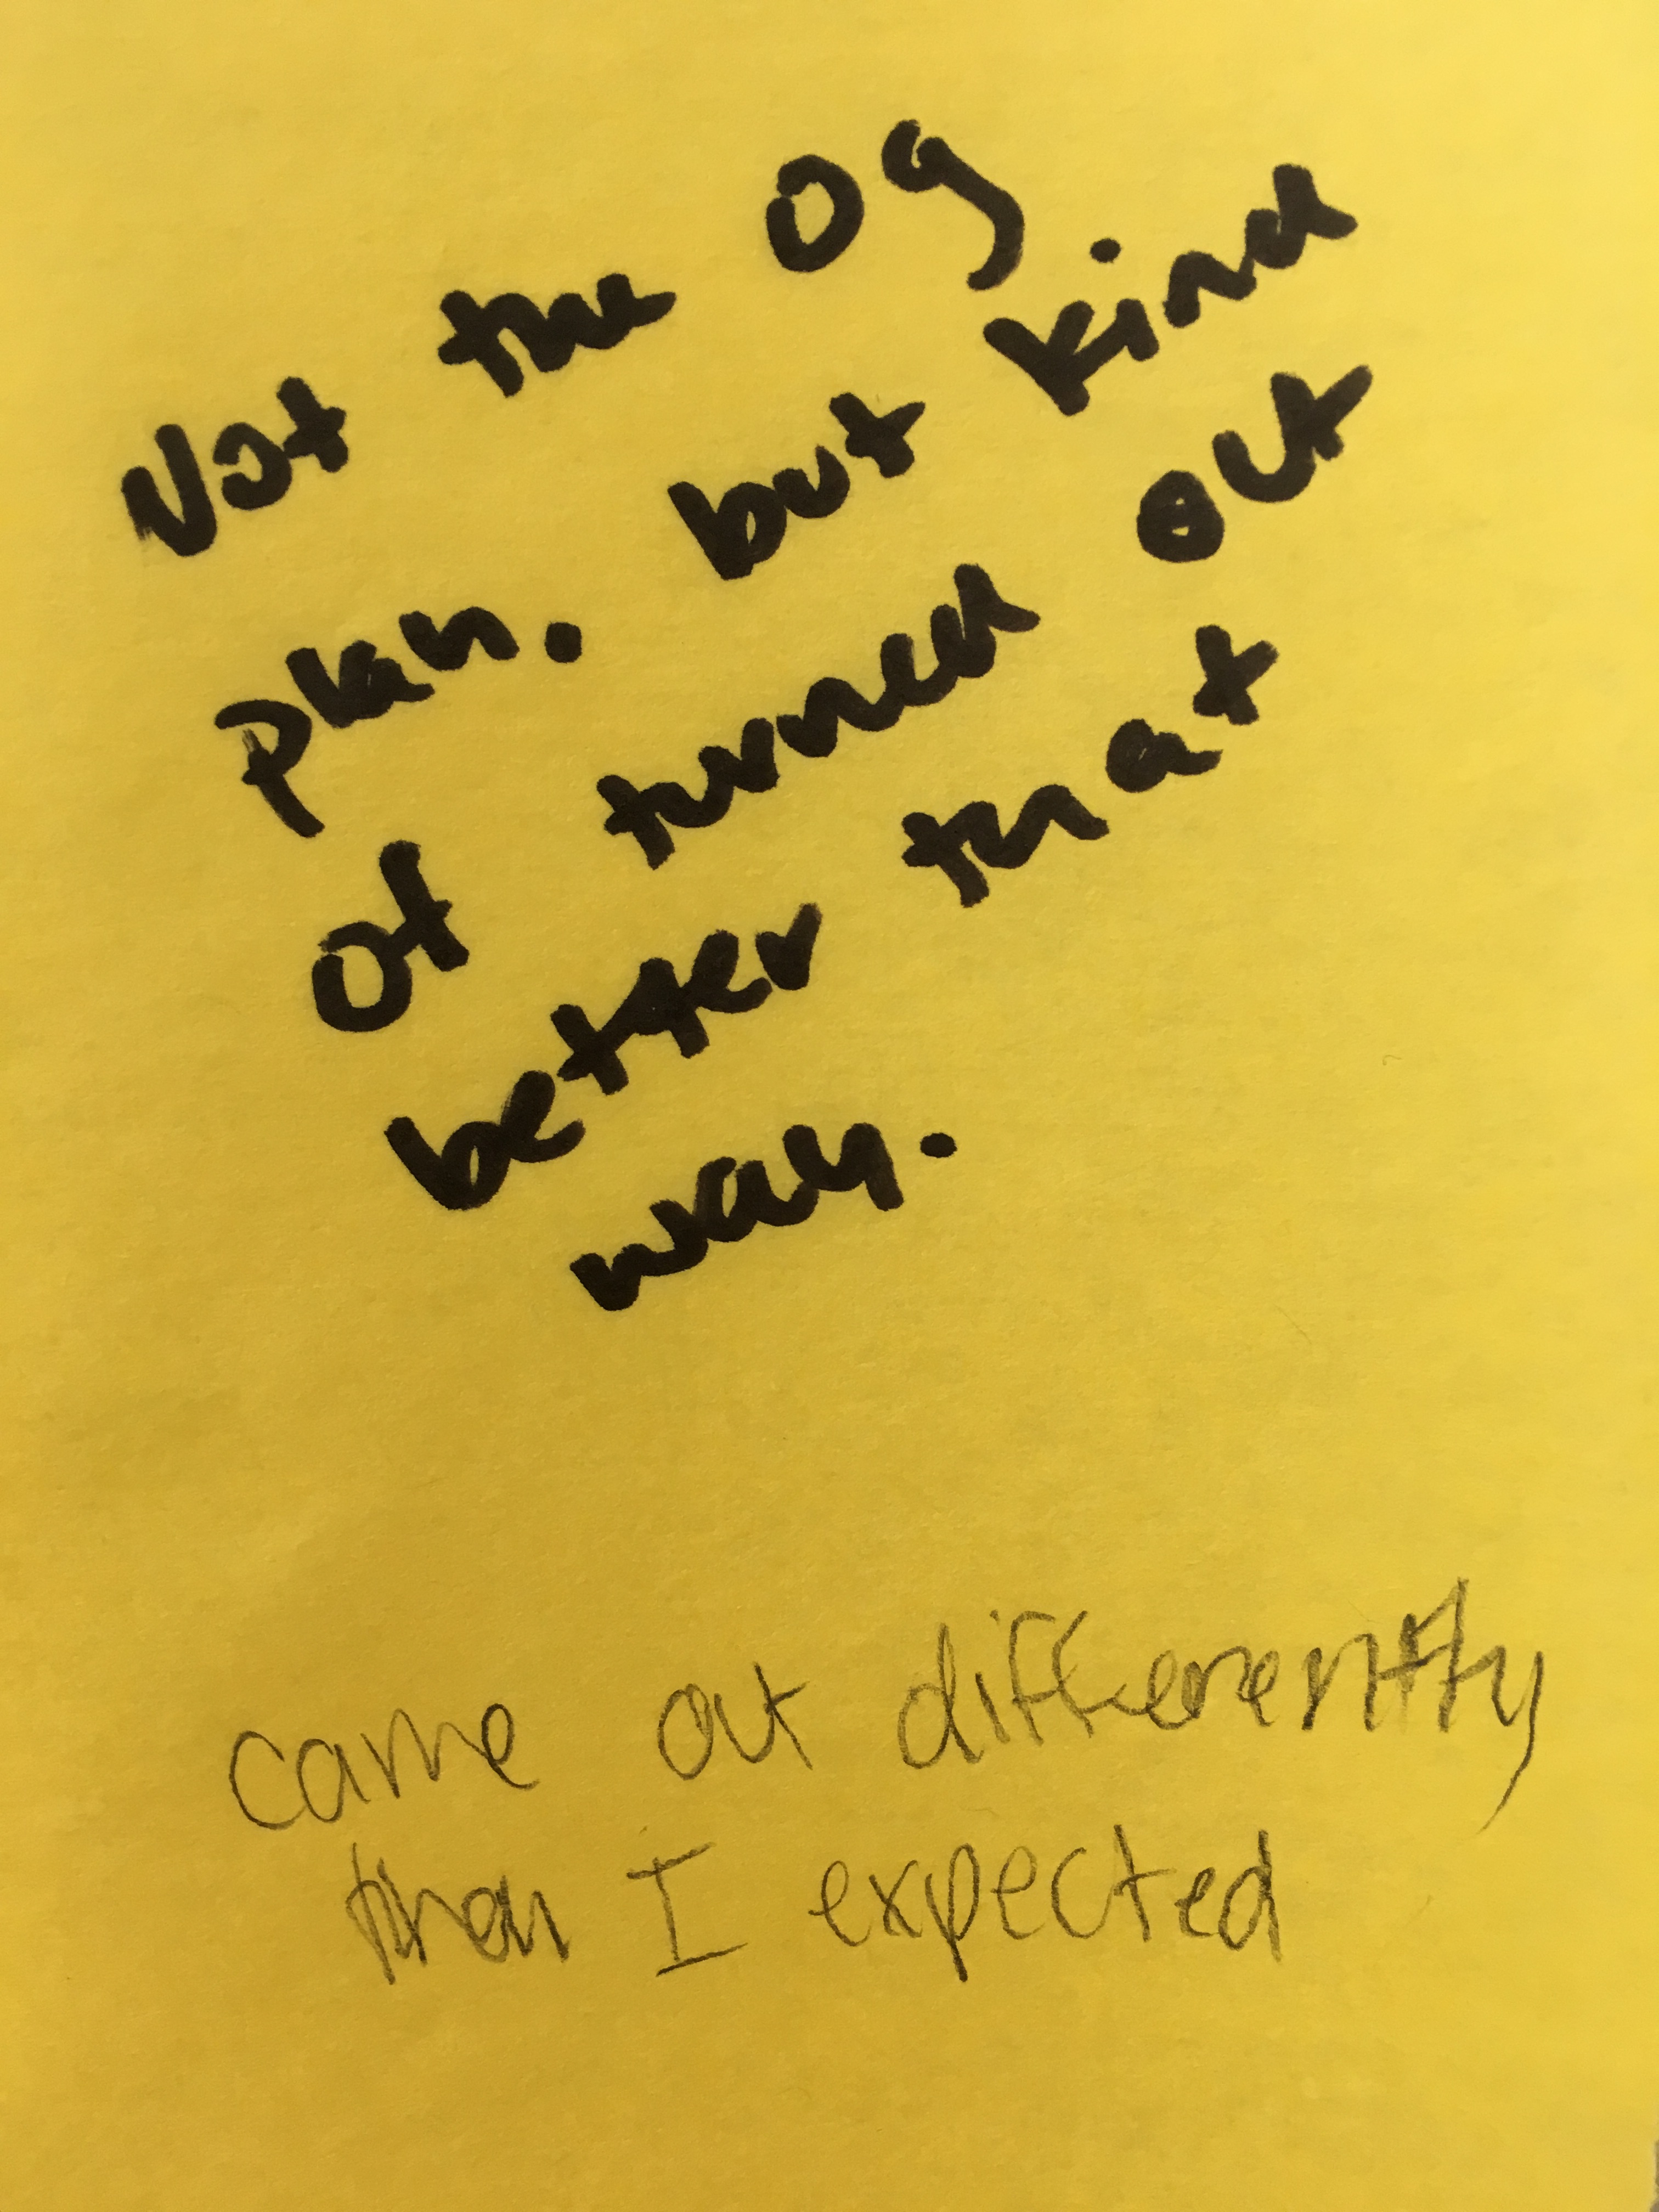 Not the og
plan. but kind
of turned out
better that
way.
came out differently
then I expected